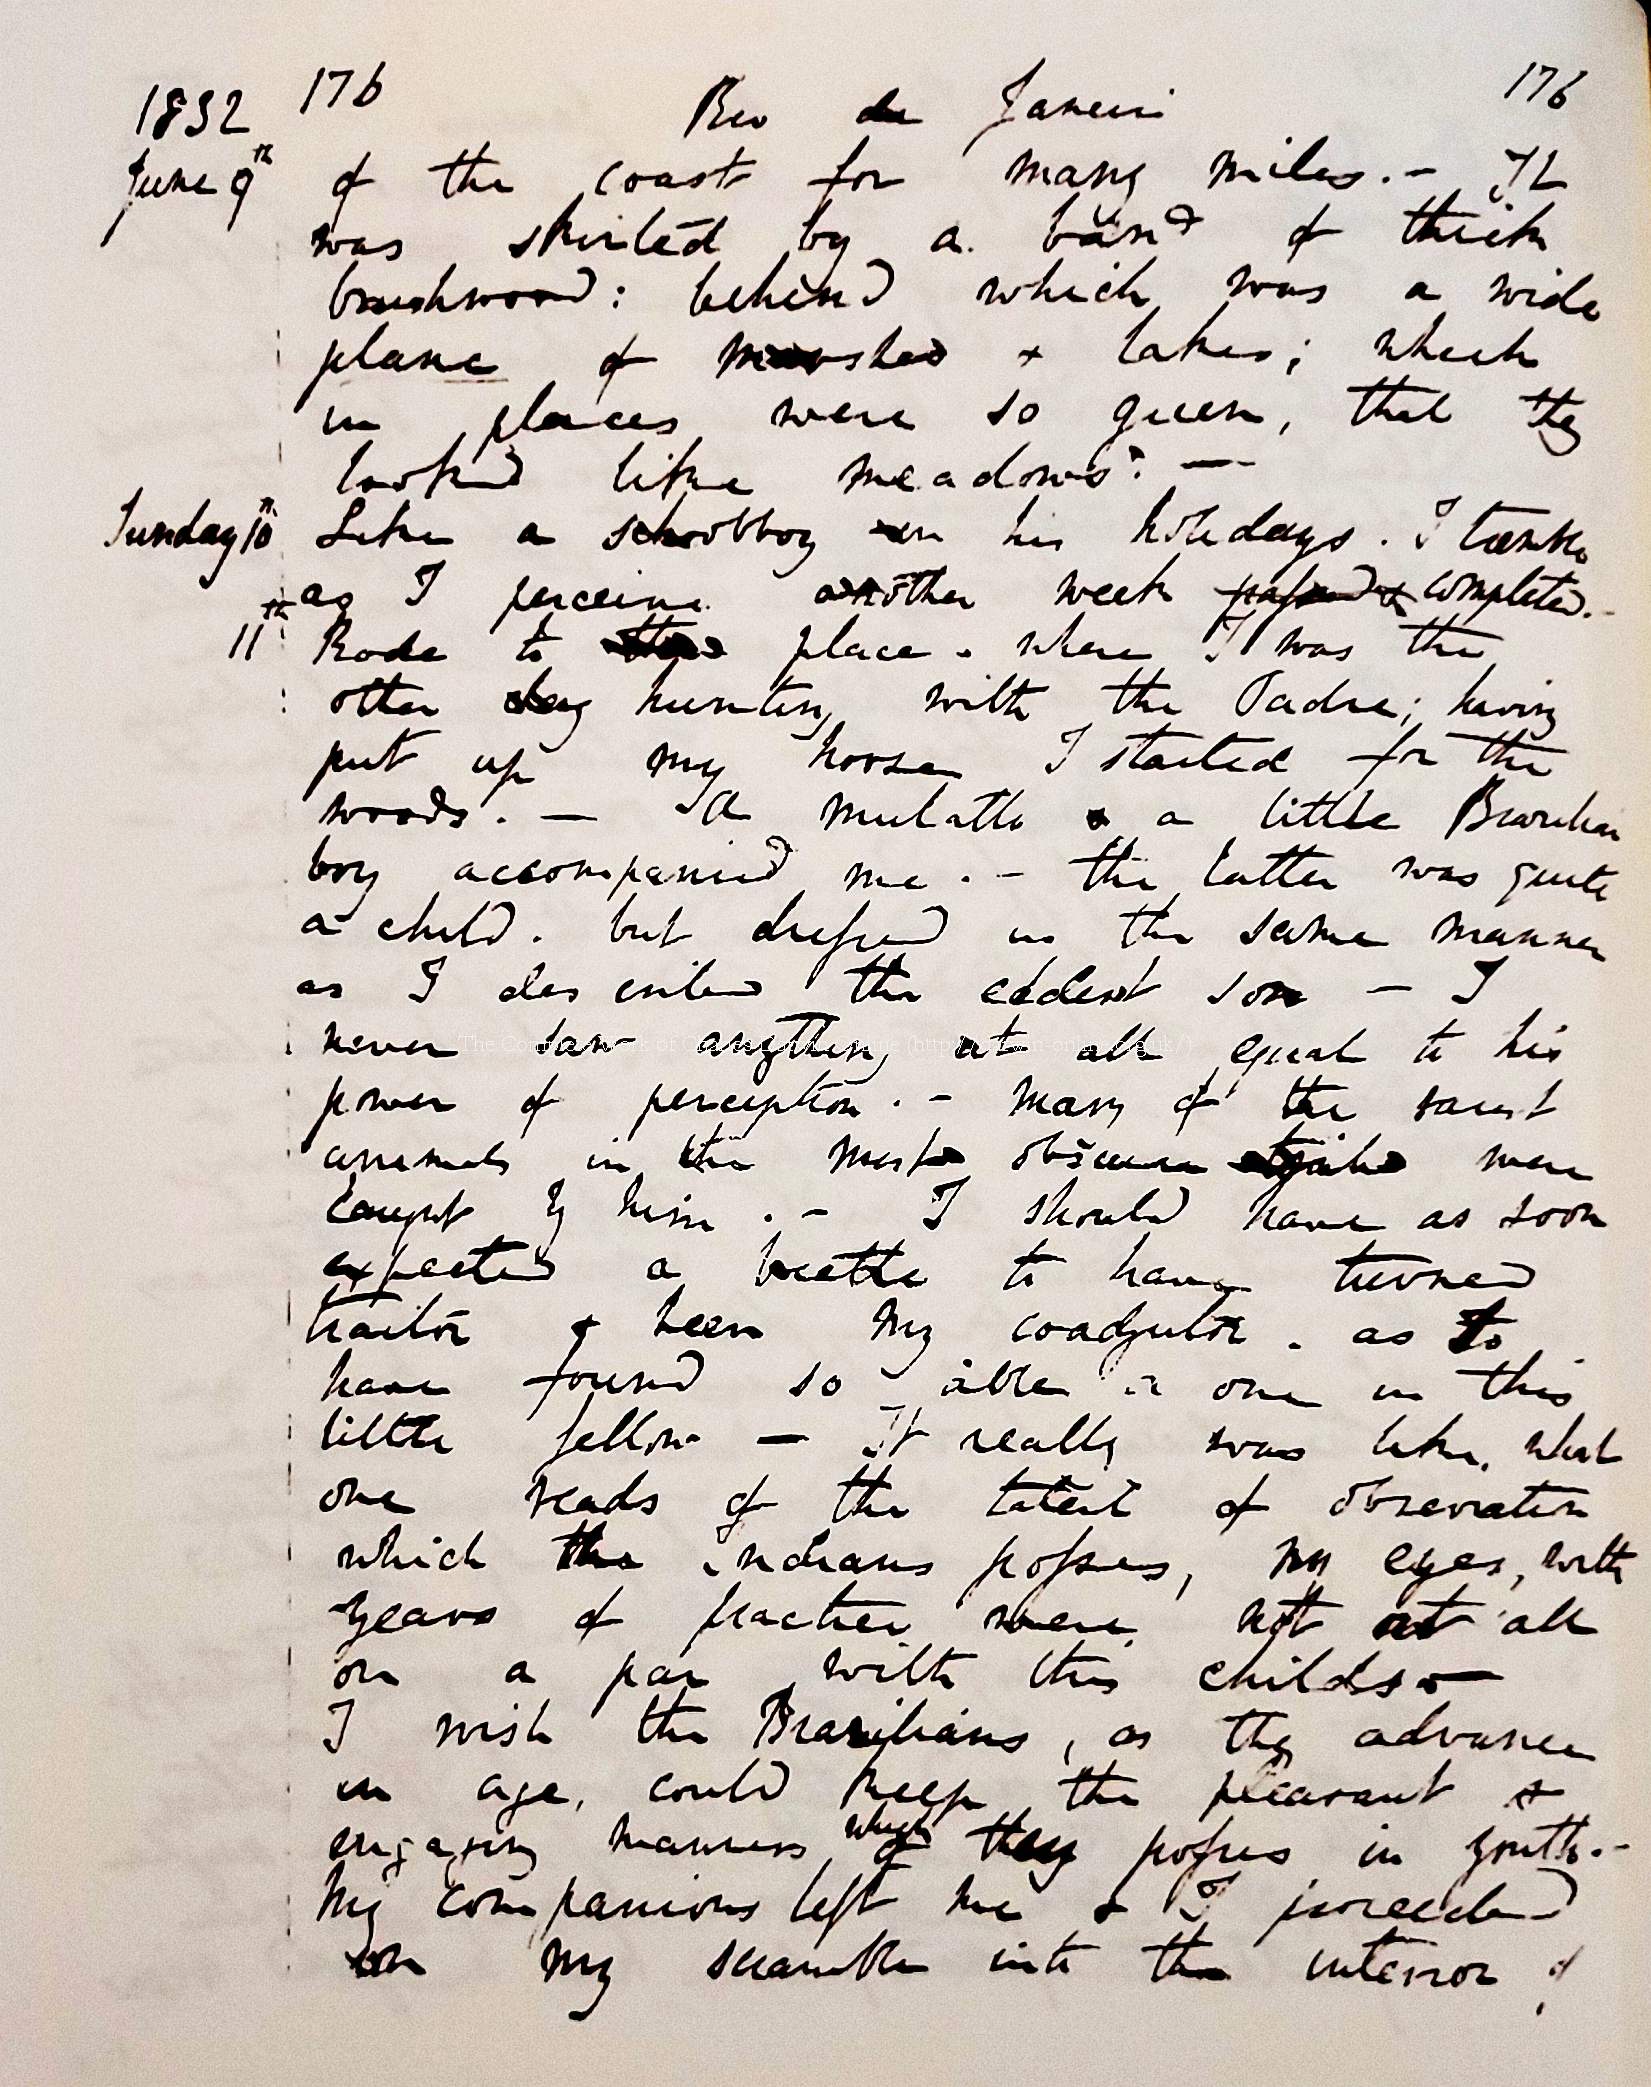 1832 176 Rio de Janeiro 176
June 9th of the coast for many miles. — It
was skirted by a band of thick
brushwood: behind which was a wide
plane of marshes & lakes; which
in places were so green, that they
looked like meadows. —
Sunday 10th Like a schoolboy in his holidays. I tremble
as I perceive another week passed & completed. —
11th Rode to place. where I was the
other day hunting with the Padre; having
put up my horse I started for the
woods. — A mulatto & a little Brazilian
boy accompanied me. — the latter was quite
a child. but dressed in the same manner
as I described the eldest son — I
never saw anything at all equal to his
power of perception. — Many of the rarest
animals in the most obscure were
caught by him. — I should have as soon
expected a beetle to have turned
traitor & been my coadjutor. as to
have found so able a one in this
little fellow — It really was like, what
one reads of the talent of observation
which the Indians possess, my eyes, with
years of practice were not at all
on a par with this childs —
I wish the Brazilians, as they advance
in age, could keep the pleasant &
engaging manners which they possess in youth. —
My companions left me & I proceeded
on my scramble into the interior of
The Complete Work of Charles Darwin Online (http://darwin-online.org.uk/)